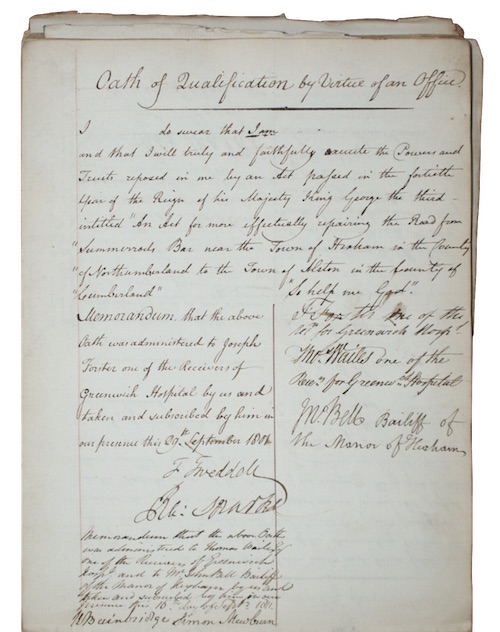 Oath of Qualification by Virtue of an Office.
I do swear that I am
and that I will truly and faithfully execute the Powers and
Trusts reposed in me by an Act passed in the fortieth
Year of the Reign of his Majesty King George the third
intitled "An Act for more effectually repairing the Road from
"Summerrods Bar near the Town of Hexham in the County
"of Northumberland to the Town of Alston in the County of
"Cumberland" "So help me God".
Memorandum that the above
Oath was administered to Joseph
Forster one of the Receivers of
Greenwich Hospital by us and
taken and subscribed by him in
our presence this 29th September 180
T Tweddell
Memorandum that the above Oath
was administered to Thomas Wailes
one of the Receivers of Greenwich
Hospl and to Mr John Bell Bailiff
of the Manor of Hexham by us and
taken and subscribed by them in our
presence this 10th
Bainbridge Simon Mewburn
one of the
for Greenwich Hospl
Thos Wailes one of the
Recrs for Greenwich Hospital
Jno Bell Bailiff of
the Manor of Hexham